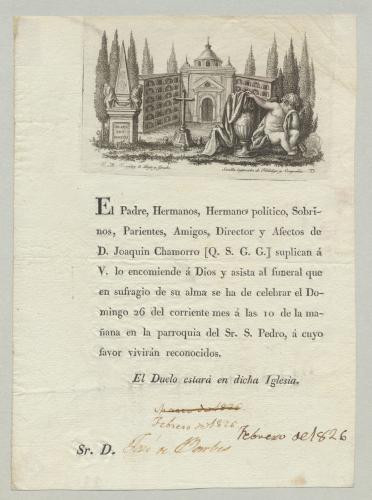 Sevilla imprenta de Hidalgo y Compañía
El Padre, Hermanos, Hermano político, Sobri-
nos, Parientes, Amigos, Director y Afectos de
D. Joaquin Chamorro [Q. S. G. G.] suplican á
V. lo encomiende á Dios y asista al funeral que
en sufragio de su alma se ha de celebrar el Do-
mingo 26 del corriente mes á las 10 de la ma-
ñana en la parroquia del Sr. S. Pedro, á cuyo
favor vivirán reconocidos.
El Duelo estará en dicha Iglesia.
de 1826
Febrero de 1826
Febrero de 1826
Sr. D.